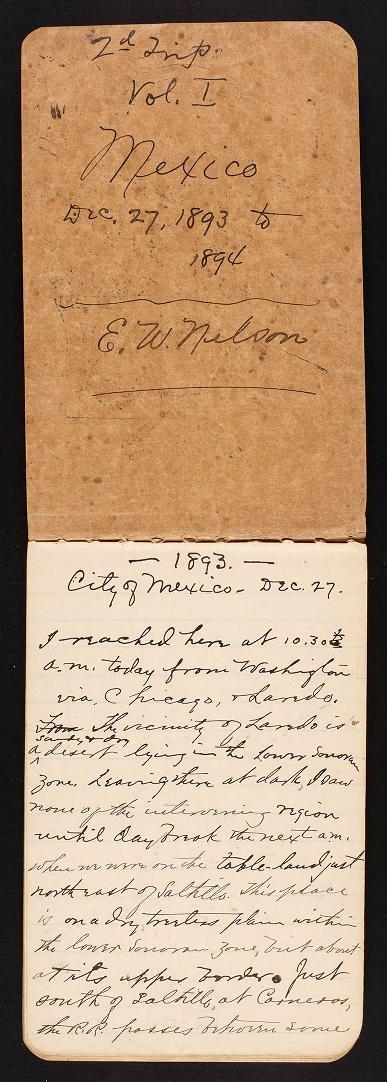 2d Trip.
Vol. I
Mexico
Dec. 27, 1893 to
1894
E. W. Nelson
— 1893. —
City of Mexico - Dec. 27.
I reached here at 10.30
a.m. today from Washington
via. Chicago, & Laredo.
From The vicinity of Laredo is
sandy & dry
a desert lying in the lower Sonoran
zone. Leaving there at dark, I saw
none of the intervening region
until daybreak the next a.m.
when we were on the table-land just
northeast of Saltillo. This place
is on a dry treeless plain within
the lower Sonoran zone, but about
at its upper border. Just
south of Saltillo, at Carneros,
the R.R. passes between some